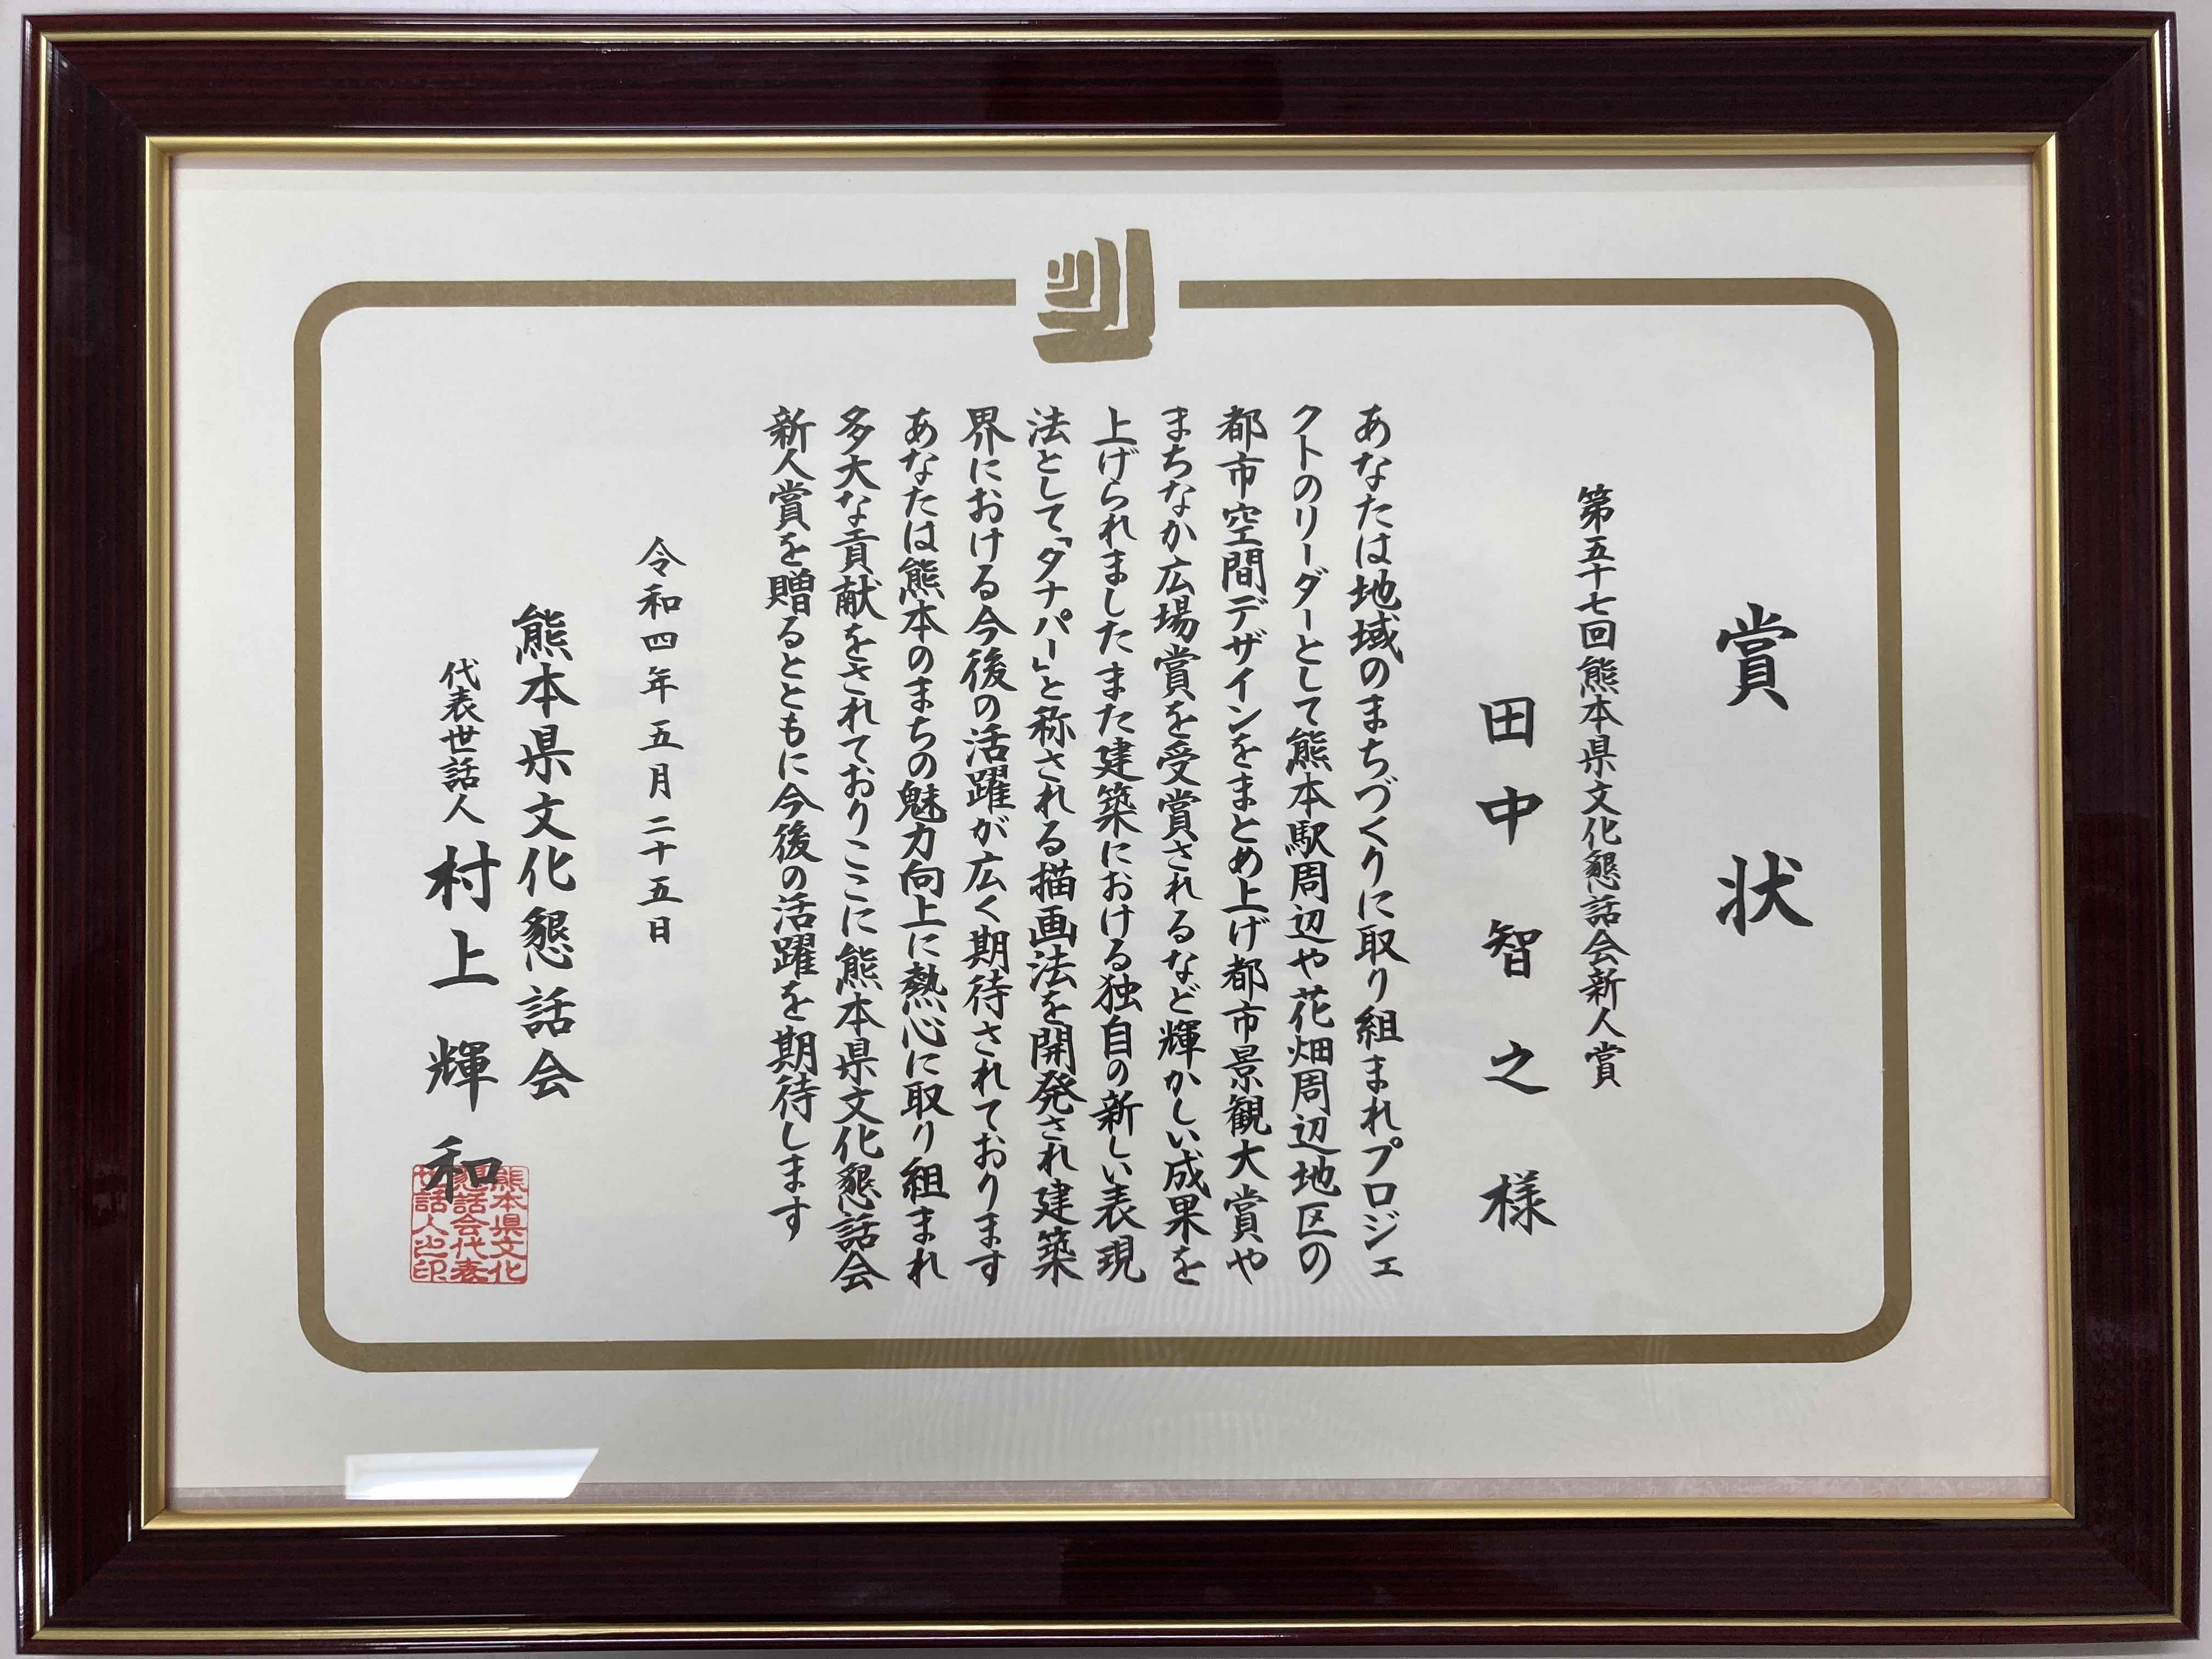 賞状
第五十七回熊本県文化懇話会新人賞
田中智之様
あなたは地域のまちづくりに取り組まれプロジェ
クトのリーダーとして熊本駅周辺や花畑周辺地区の
都市空間デザインをまとめ上げ都市景観大賞や
まちなか広場賞を受賞されるなど輝かしい成果を
上げられましたまた建築における独自の新しい表現
法として「タナパー」と称される描画法を開発され建築
界における今後の活躍が広く期待されております
あなたは熊本のまちの魅力向上に熱心に取り組まれ
多大な貢献をされておりここに熊本県文化懇話会
新人賞を贈るとともに今後の活躍を期待します
令和四年五月二十五日
熊本県文化懇話会
代表世話人 村上輝和
熊本県文化
懇話会代表
世話人之印